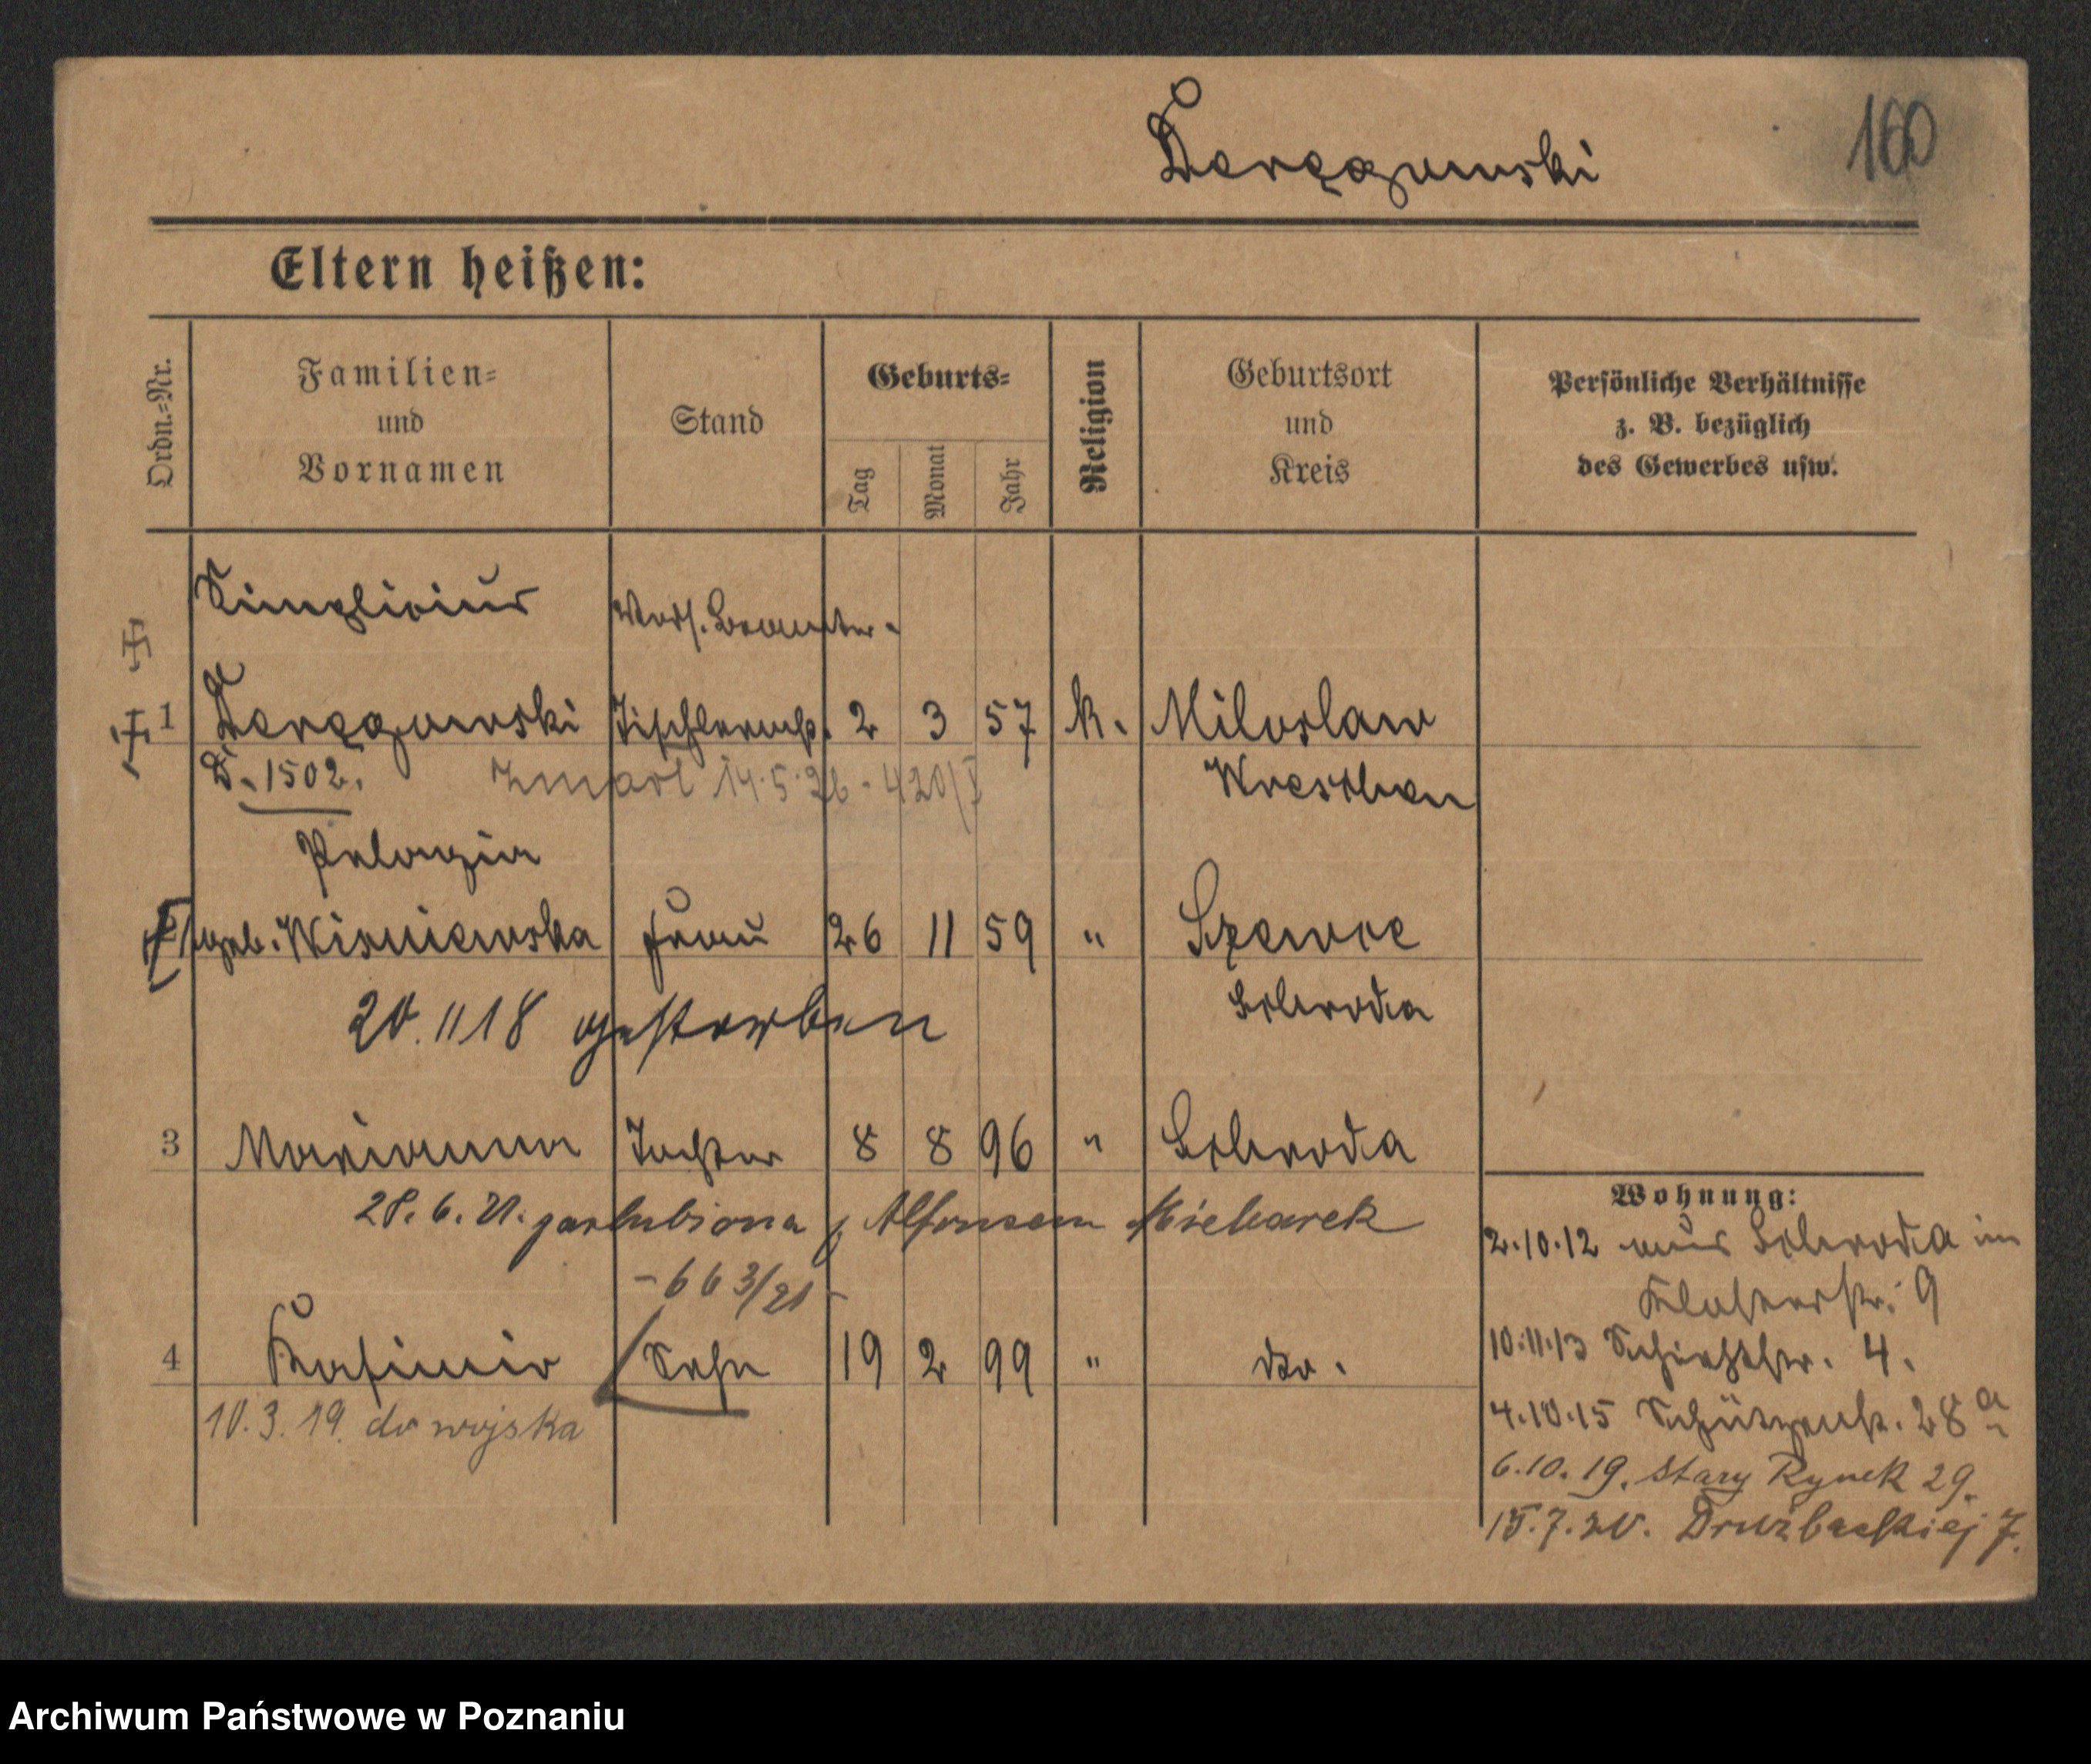 Deręgowski
160
Eltern heißen:
Ordn.=Nr.
Familien=
und
Vornamen
Stand
Geburts=
Tag
Monat
Jahr
Religion
Geburtsort
und
Kreis
Persönliche Verhältnisse
z. B. bezüglich
des Gewerbes usw.
Simplicius
Beamter.
1 Deręgowski Tischlermstr. 2 3 57 k. Miloslaw
D. 1502. zmarł 14.5.26 - 420/I Wreschen
Pelagia
geb. Wisniewska Frau 26 11 59 " Szewce
20. 11 18 gestorben Schroda
3 Marianna Tochter 8 8 96 " Schroda
28. 6. 21. poślubiona z Alfonsem
- 663/21 -
4 Kasimir Sohn 19 2 99 " do.
10. 3. 19. do wojska
Wohnung:
2.10.12 aus Schroda in
Klosterstr. 9
10.11.13 4.
4.10.15 Schützenstr. 28a
6.10.19. Stary Rynek 29.
15.7.20. Drużbackiej 7.
Archiwum Państwowe w Poznaniu